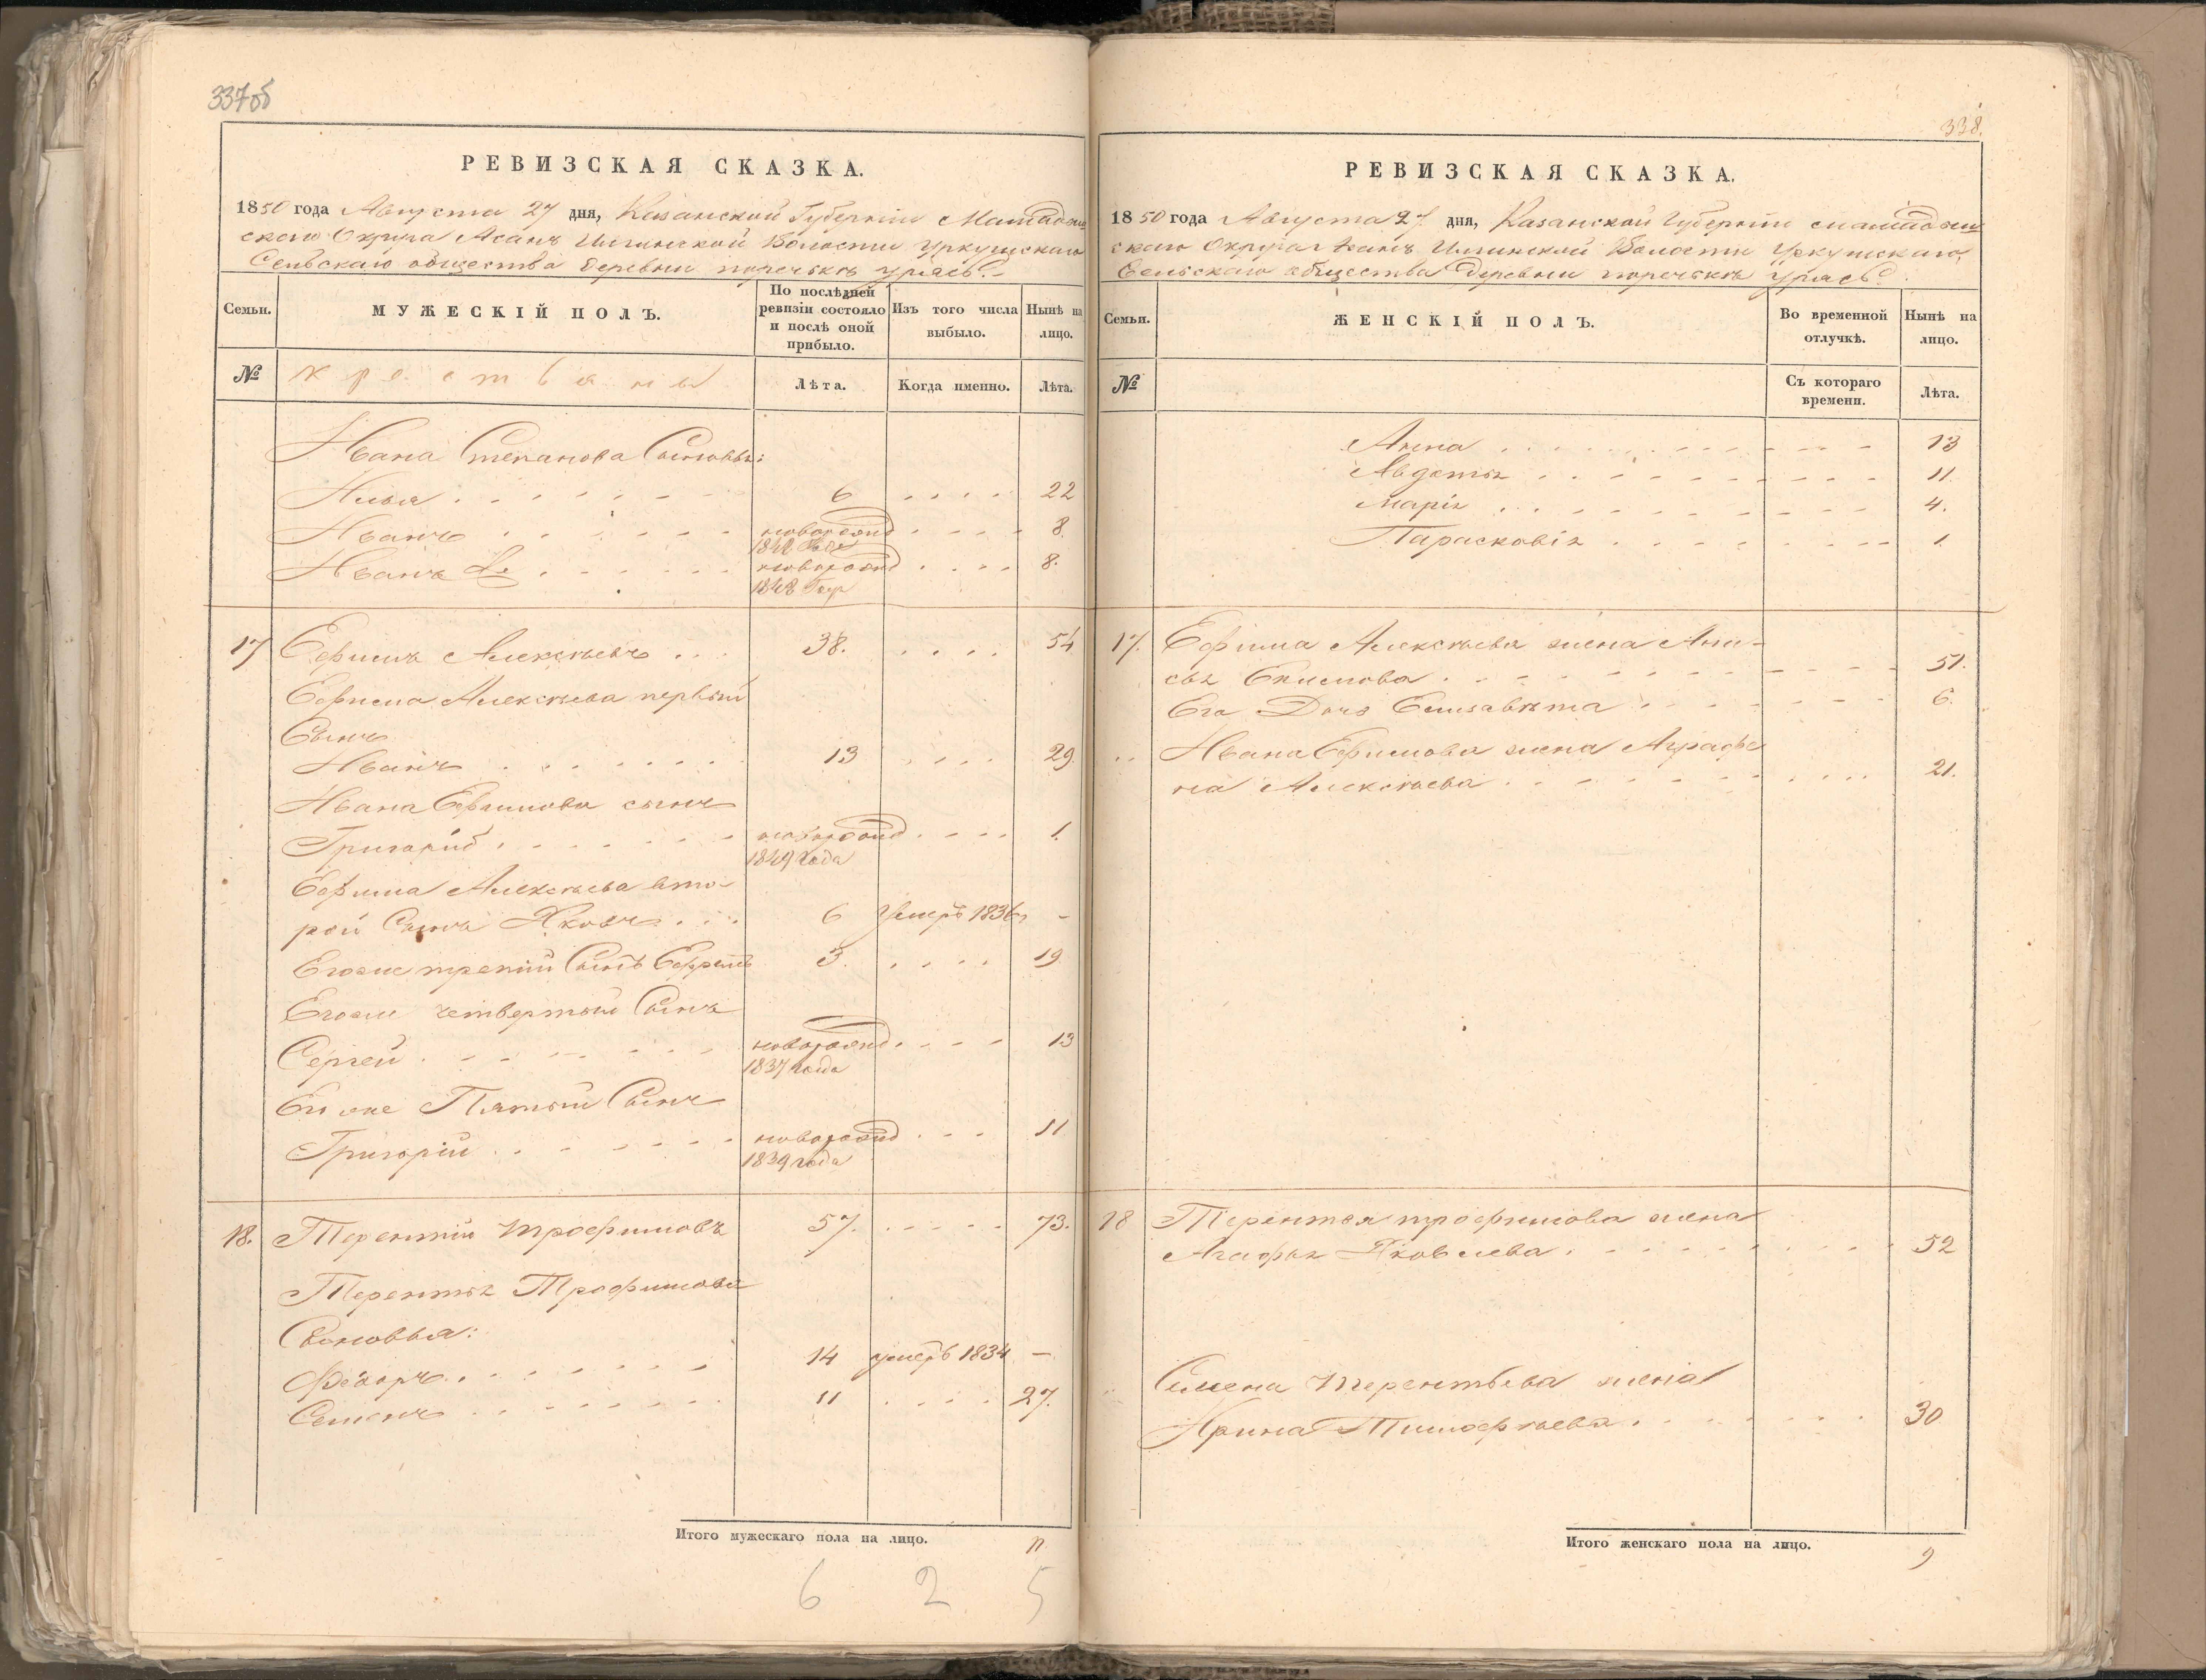 337об
РЕВИЗСКАЯ СКАЗКА.
1850 года Августа 27 дня, Казанской Губернiи Мамадыш
скаго Округа Асанъ Илгинской Волости Уркушскаго
Сельскаго общества деревни поречькъ Урясь.
Семьи.
МУЖЕСКІЙ ПОЛЪ.
По послѣдней ревизіи состояло и послѣ оной прибыло.
Изъ того числа выбыло.
Нынѣ на лицо.
№
крестьяны
Лѣта.
Когда именно.
Лѣта.
Ивана Степанова Сыновья:
Илья 6 22
Иванъ новорожд 8
Иванъ 2й новорожд 8.
17 Ефимъ Алексѣевъ 38. 54
Ефима Алексѣева первый
Сынъ
Иванъ 13 29.
Ивана Ефимова сынъ
Григорий новорожд 1.
1849 года
Ефима Алексѣева вто-
рой Сынъ Яковъ 6 Умеръ 1836г -
Егоже третiй Сынъ Ефремъ 3. 19
Егоже четвертый Сынъ
Сергей новорожд 13
1837 года
Его же Пятый Сынъ
Григорiй новорожд 11
1839 года
18. Терентiй Трофимовъ 57. 73.
Терентья Трофимова
Сыновья:
Федоръ 14 умеръ 1834 —
Семенъ 11 27.
Итого мужескаго пола на лицо. 11
6 2 5
338.
РЕВИЗСКАЯ СКАЗКА.
1850 года Августа 27. дня, Казанской Губернiи мамадыш
скаго Округа Асанъ Илгинской Волости Уркушскаго
Сельскаго общества деревни поречькъ Урясь.
Семьи.
ЖЕНСКІЙ ПОЛЪ.
Во временной отлучкѣ.
Нынѣ на лицо.
№
Съ котораго времени.
Лѣта.
Анна 13
Авдотья 11.
Марiя 4.
Парасковiя 1.
17. Ефима Алексѣева жена Ани-
сья Екимова 51.
Его Дочь Елизавѣта 6.
Ивана Ефимова жена Аграфе
на Алексѣева 21.
18 Терентья трофимова жена
Агафья Яковлева 52
Семена Терентьева жена
Ирина Тимофѣева 30
Итого женскаго пола на лицо. 9